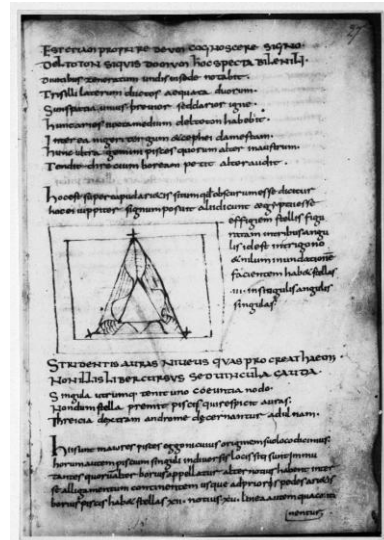 EST ETIAM PROPRI RE DEUM COGNOSCERE SIGNO.
DELTOTON SIQUIS DONUM HOC SPECTA BILE NILI.
undis insede notabit.
Trisilli laterum ductus aequata duorum.
Suntspatia unius breuior sedclarior igne.
hunc aries iuxta medium deltoton habebit.
Inter tergum & cephei
hunc ultra gemini pisces quorum alter
Tendit borean petit alter audit.
hocest super caput arietis situm quod obscurum esse dicitur
hoc ei iuppiter signum posuit alii dicunt aegypti esse
effigiem stellis figu
ratam in tribus angu
lis idest intrigono
& nilum inundatione
facientem hab& stellas
.iii. insingulis angulis
singulas
STRIDENTIS AURAS NIUEUS QUAS PROCREAT HAEMON.
NON ILLIS LIBER CURSUS SED UINCULA CAUDA.
Singula utrimque tenet uno coeuntia nodo.
Nondum stella premit piscis qui respicit auras.
Threicia dextram andromede cernantur adulnam.
hi sunt maiores pisces cuius originem suo loco dicimus.
horum autem piscium singuli in locis siti sunt inmu
tantes quorum alter borius appellatur alter notius habent inter
se alligamentum continentem usque ad priores pedes arietis
borius piscis hab& stellas xii. notius xv. linea autem quae ita
notius